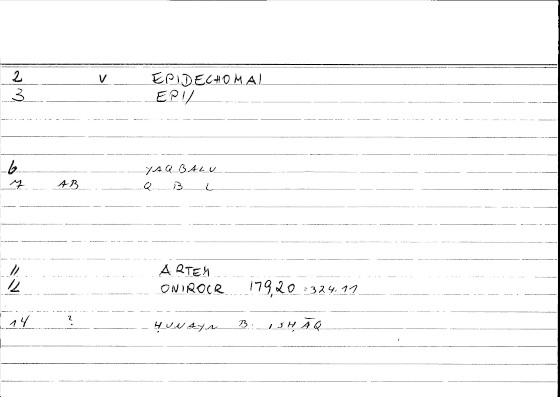 2 V EPIDECHOMAI
3 EPI/
6 YAQBALU
7 AB Q B L
11 ARTEM
12 ONIROCR 179,20 = 324.11
14 ? ḤUNAYN B. ISḤĀQ